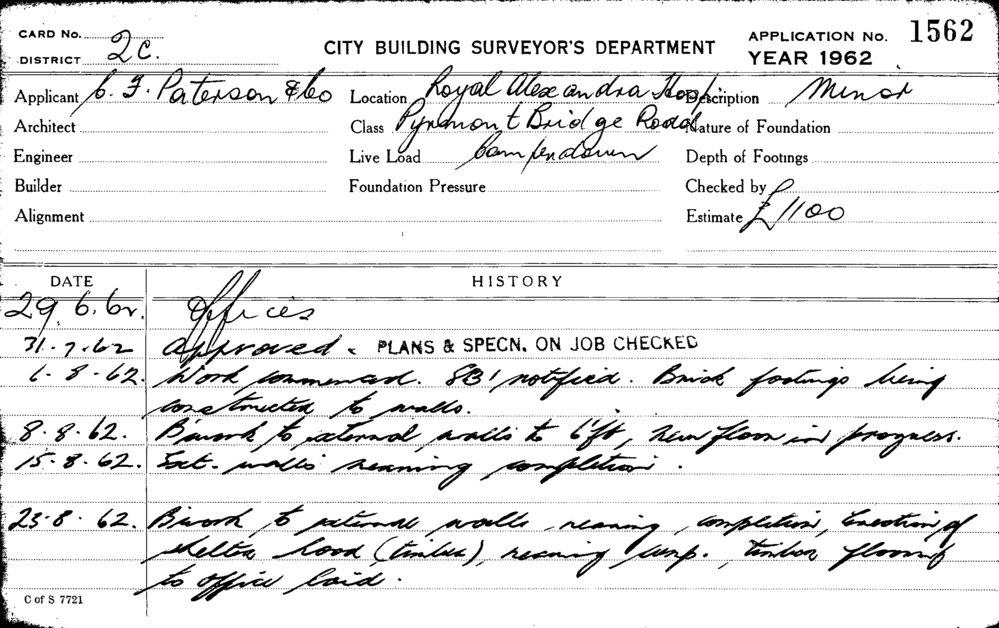 CARD No. 2C.
DISTRICT
CITY BUILDING SURVEYOR'S DEPARTMENT
APPLICATION No. 1562
YEAR 1962
Applicant C. F. Paterson & Co Location Royal Alexandra Hosp Description Minor
Architect Class Pyrmont Bridge Road Nature of Foundation
Engineer Live Load Camperdown Depth of Footings
Builder Foundation Pressure Checked by
Alignment Estimate £1100
DATE HISTORY
29.6.62. Offices
31.7.62 Approved. PLANS & SPECN. ON JOB CHECKED
6.8.62. Work commenced. SB1 notified. Brick footings being
constructed to walls.
8.8.62. B'work to external walls to 6'ft, new floor in progress.
15.8.62. Ext. walls nearing completion.
23.8.62. B'work to external walls nearing completion, Erection of
shelter hood (timber), nearing comp. timber flooring
to office laid.
C of S 7721